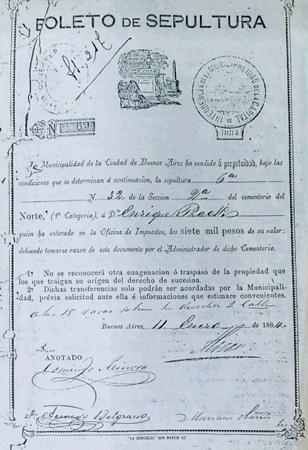 BOLETO DE SEPULTURA
INTENDENCIA DE LA MUNICIPALIDAD DE LA CAPITAL
1883
N
La Municipalidad de la Ciudad de Buenos Aires ha vendido á perpetuidad, bajo las
condiciones que se determinan á continuacion, la sepultura 6a
N 32 de la Seccion 2a del cementerio del
Norte, (1ª Categoría), á D. Enrique
quien ha enterado en la Oficina de Impuestos, los siete mil pesos de su valor:
debiendo tomarse razon de este documento por el Administrador de dicho Cementerio.
1ª No se reconocerá otra enagenacion ó traspaso de la propiedad que
los que traigan su origen del derecho de sucesion.
2ª Dichas transferencias solo podrán ser acordadas por la Municipalidad,
prévia solicitud ante ella é informaciones que estimare convenientes.
a las 15 varas sobre
Buenos Aires, 11 Enero 1884
ANOTADO
Belgrano
Mariano
"LA COMERCIAL" SAN MARTIN